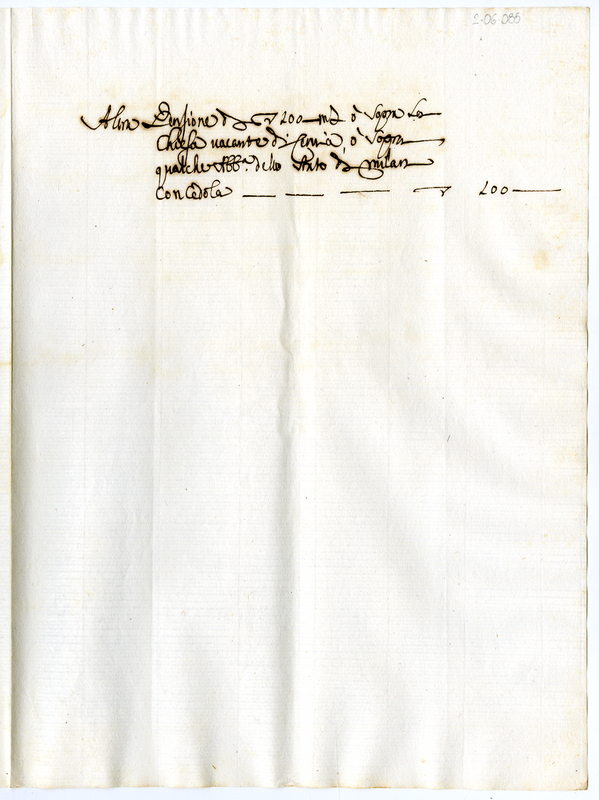 2-06-085
Altra Pensione di 200 ò sopra la
Chiesa uacante di ò sopra
qualche Abb.ª dello Stato di Milano
Con Cedola — — — 200 —